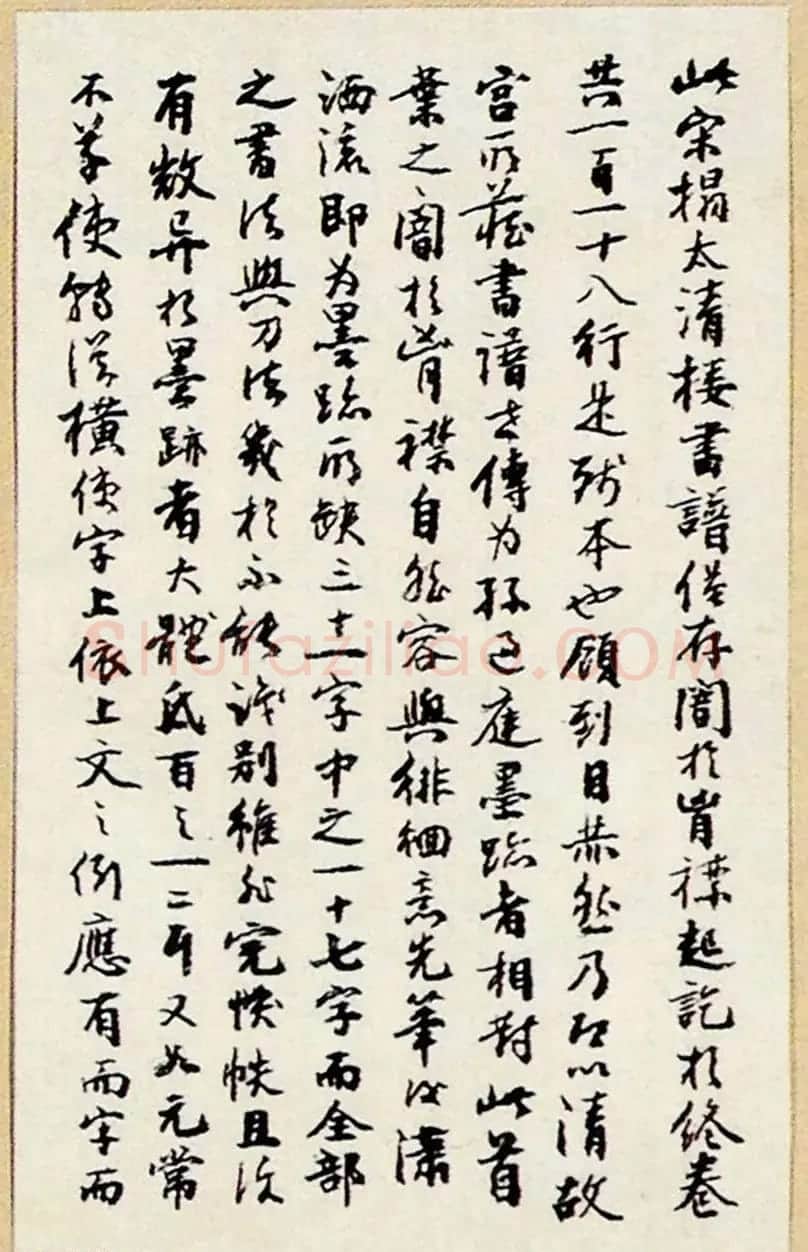 此宋搨太清楼書譜僅存闇於胷襟起訖於终卷
共一百一十八行是残本也顧到目恭然乃取以清故
宫所藏書譜古傳为孫过庭墨跡者相对此首
葉之闇於胷襟自然容與徘徊意先筆后瀟
洒流即为墨跡所缺三十一字中之一十七字而全部
之書法與刀法幾於不能識别雖非完帙且次
有数异於墨跡者大體氐百之一二耳又如元常
不草使转從横使字上依上文之例應有而字而
shufaziliao.COM